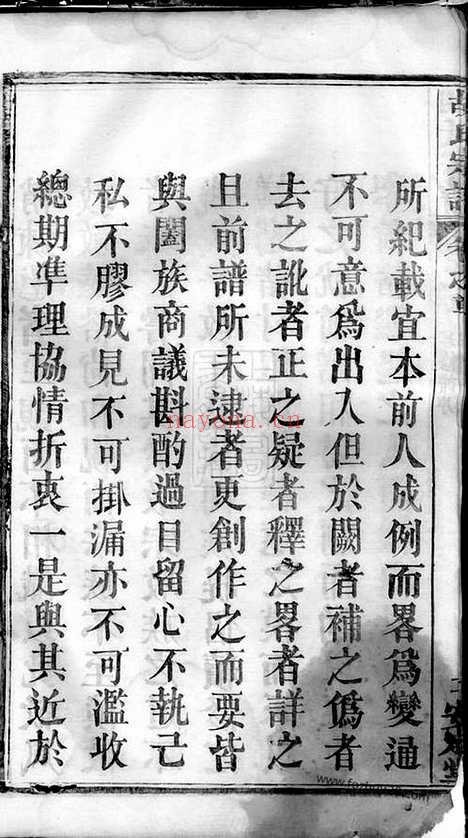 所紀載宜本前人成例而畧爲變通
不可意爲出入但於闕者補之僞者
去之訛者正之疑者釋之畧者詳之
且前譜所未逮者更創作之而要皆
與闔族商議斟酌過目留心不執己
私不膠成見不可掛漏亦不可濫收
總期准理協情折衷一是與其近於
nayona.cn